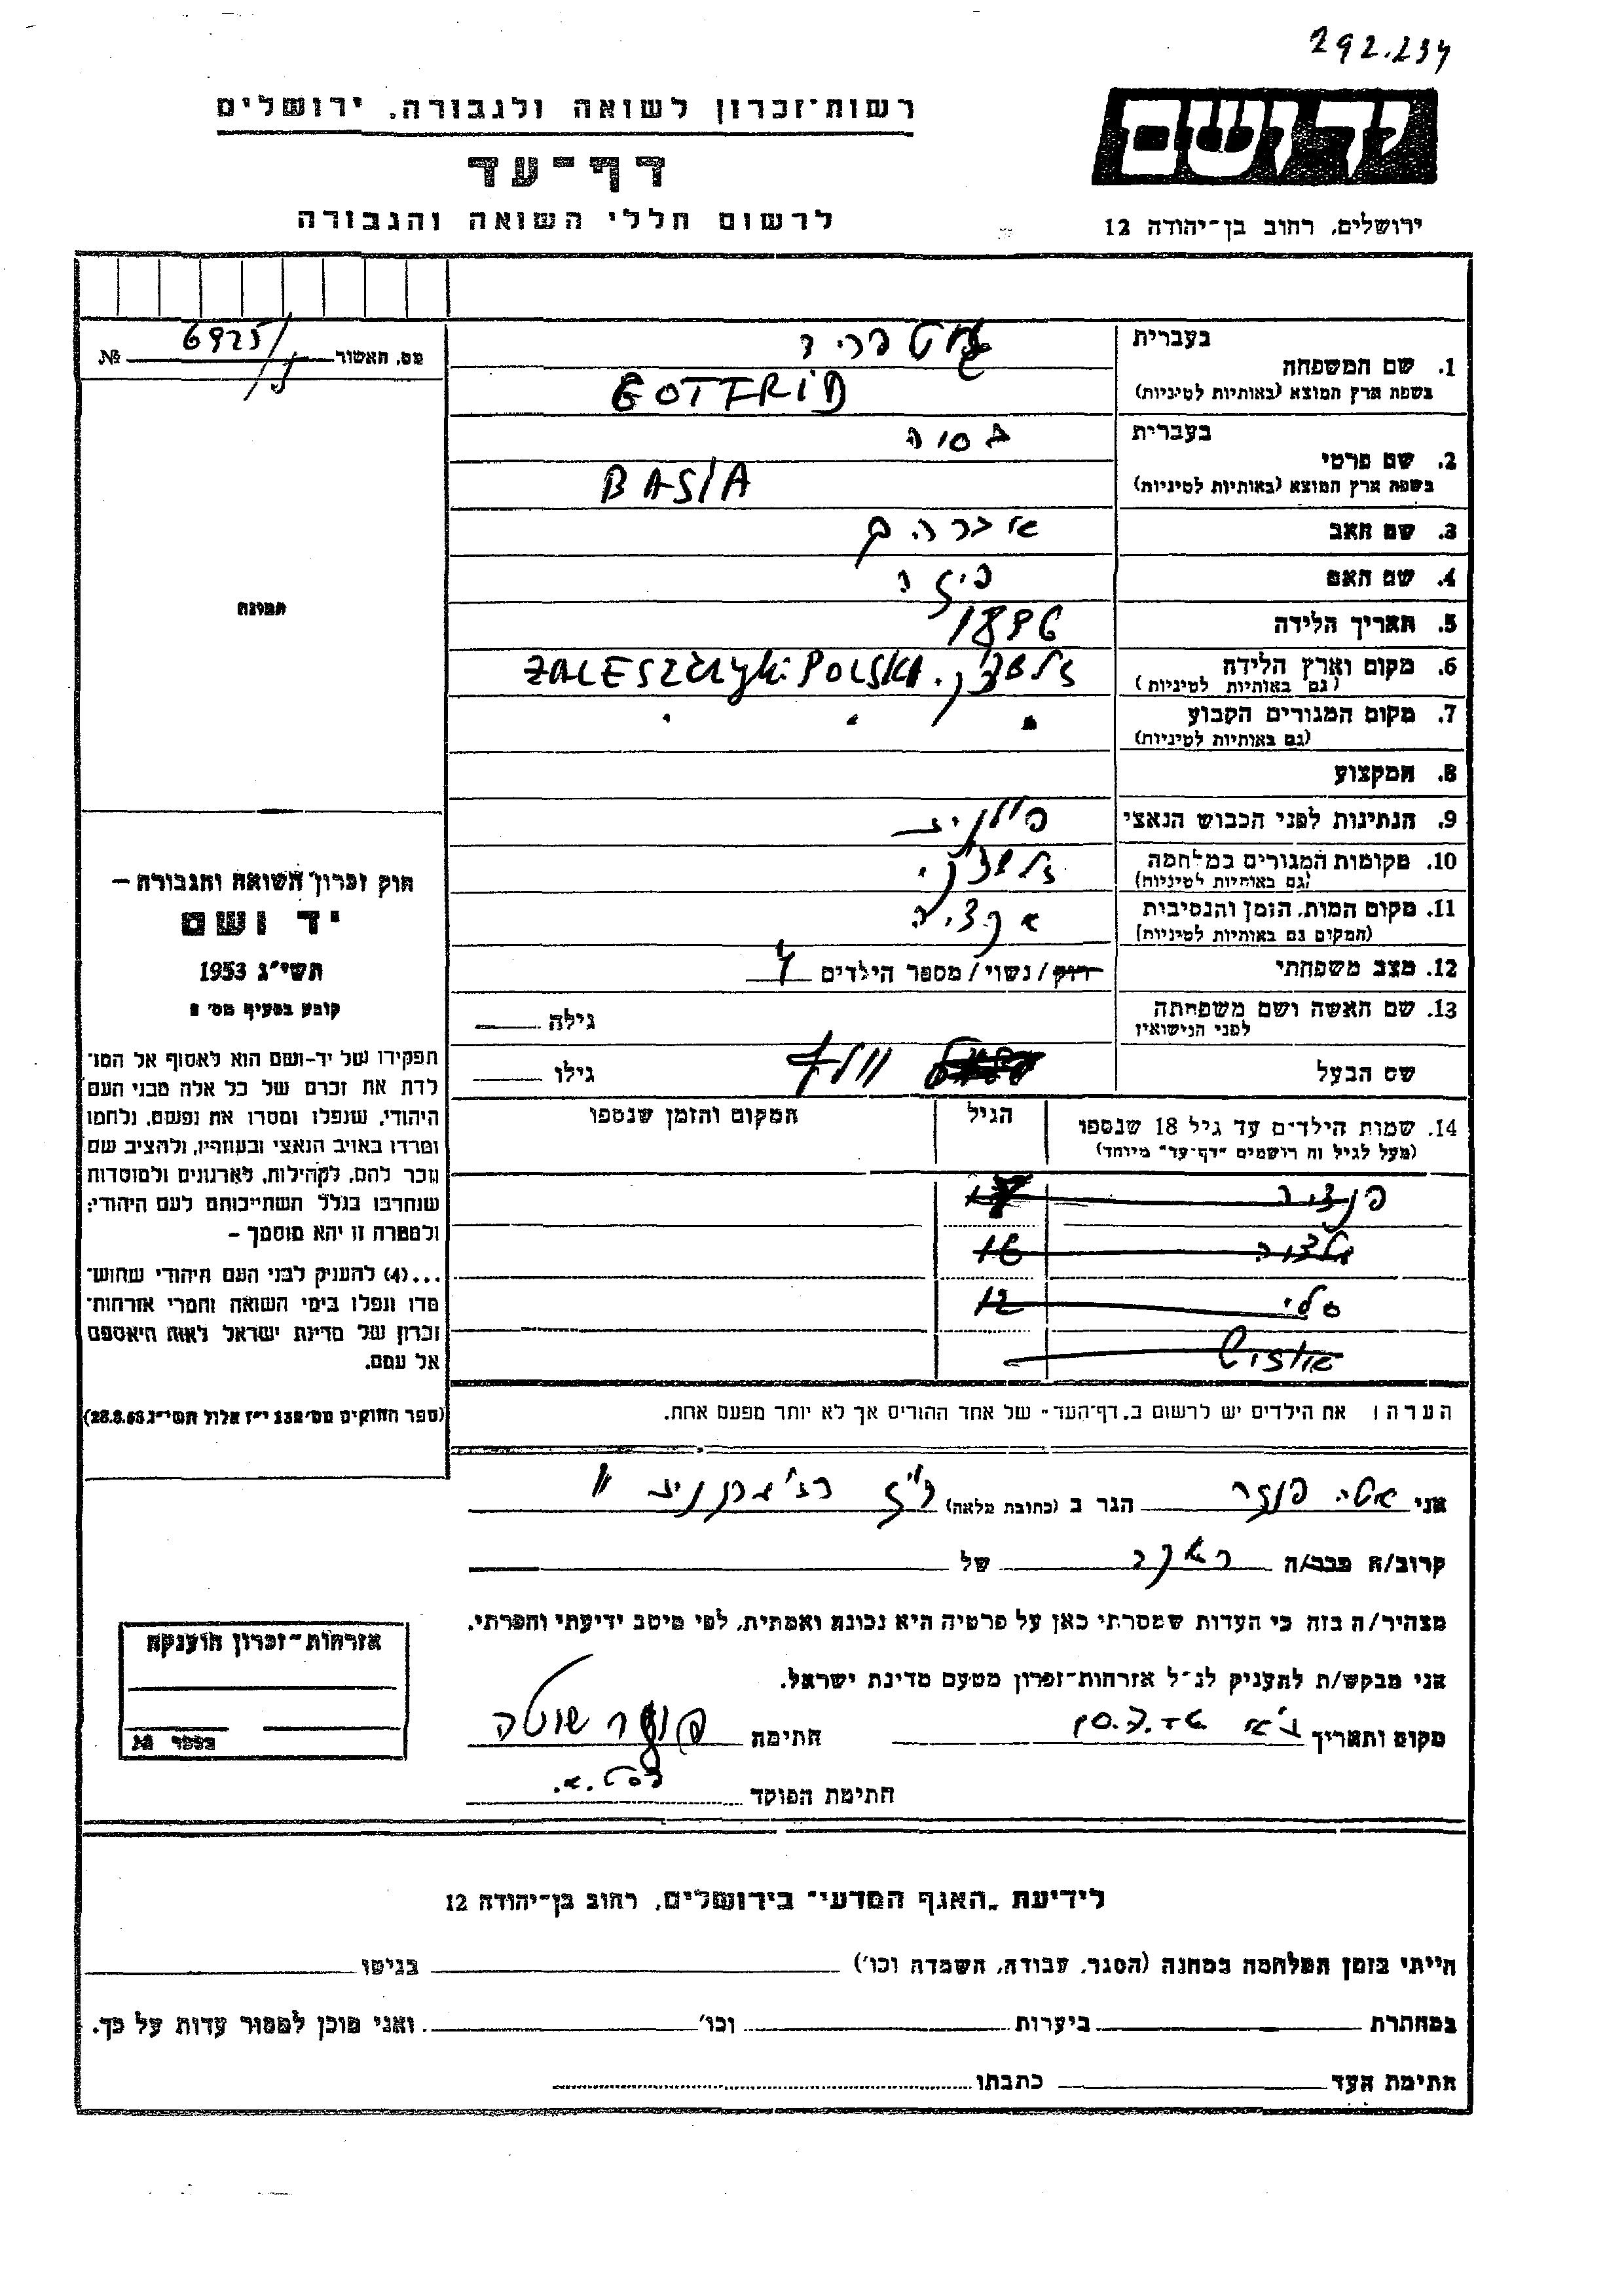 292.234
רשות־זכרון לשואה ולגבורה, ירושלים
יד ושם
דף־עד
לרשום חללי השואה והגבורה
ירושלים, רחוב בן־יהודה 12
מס. האשור 6925/ №
1. שם המשפחה
בעברית
גוטפריד
בשפת ארץ המוצא (באותיות לטיניות)
GOTTRID
2. שם פרטי
בעברית
בסיה
בשפת ארץ המוצא (באותיות לטיניות)
BASIA
3. שם האב אברהם
4. שם האם
5. תאריך הלידה 1896
6. מקום וארץ הלידה
(גם באותיות לטיניות)
ZALESZCZYKI POLSKA
7. מקום המגורים הקבוע " " "
(גם באותיות לטיניות)
8. המקצוע
9. הנתינות לפני הכבוש הנאצי פולניה
10. מקומות המגורים במלחמה
(גם באותיות לטיניות)
11. מקום המות, הזמן והנסיבות אקציה
(המקום גם באותיות לטיניות)
12. מצב משפחתי רווק/נשוי/ מספר הילדים 4
13. שם האשה ושם משפחתה גילה
לפני הנישואין
שם הבעל וולף גילו
14. שמות הילדים עד גיל 18 שנספו הגיל המקום והזמן שנספו
(מעל לגיל זה רושמים "דף־עד" מיוחד)
16
סלי 12
הערה: את הילדים יש לרשום ב"דף־העד" של אחד ההורים אך לא יותר מפעם אחת.
תמונה
חוק זכרון השואה והגבורה —
יד ושם
תשי״ג 1953
קובע בסעיף מס׳ 2
תפקידו של יד-ושם הוא לאסוף אל המו־
לדת את זכרם של כל אלה מבני העם
היהודי, שנפלו ומסרו את נפשם, נלחמו
ומרדו באויב הנאצי ובעוזריו, ולהציב שם
וזכר להם, לקהילות, לארגונים ולמוסדות
שנחרבו בגלל השתייכותם לעם היהודי;
ולמטרה זו יהא מוסמך —
...(4) להעניק לבני העם היהודי שהוש־
מדו ונפלו בימי השואה והמרי אזרחות־
זכרון של מדינת ישראל לאות היאספם
אל עמם.
(ספר החוקים מס׳ 132 י״ז אלול תשי״ג 28.8.53)
אני הגר ב (כתובת מלאה)
קרוב/ה מכר/ה של
מצהיר/ה בזה כי העדות שמסרתי כאן על פרטיה היא נכונה ואמתית, לפי מיטב ידיעתי והכרתי.
אני מבקש/ת להעניק לנ״ל אזרחות־זכרון מטעם מדינת ישראל.
מקום ותאריך חתימה
חתימת הפוקד
אזרחות־זכרון הוענקה
במספר №
לידיעת "האגף המדעי" בירושלים, רחוב בן־יהודה 12
הייתי בזמן המלחמה במחנה (הסגר, עבודה, השמדה וכו׳) בגיטו
במחתרת ביערות וכו׳ ואני מוכן למסור עדות על כך.
חתימת העד כתבתו